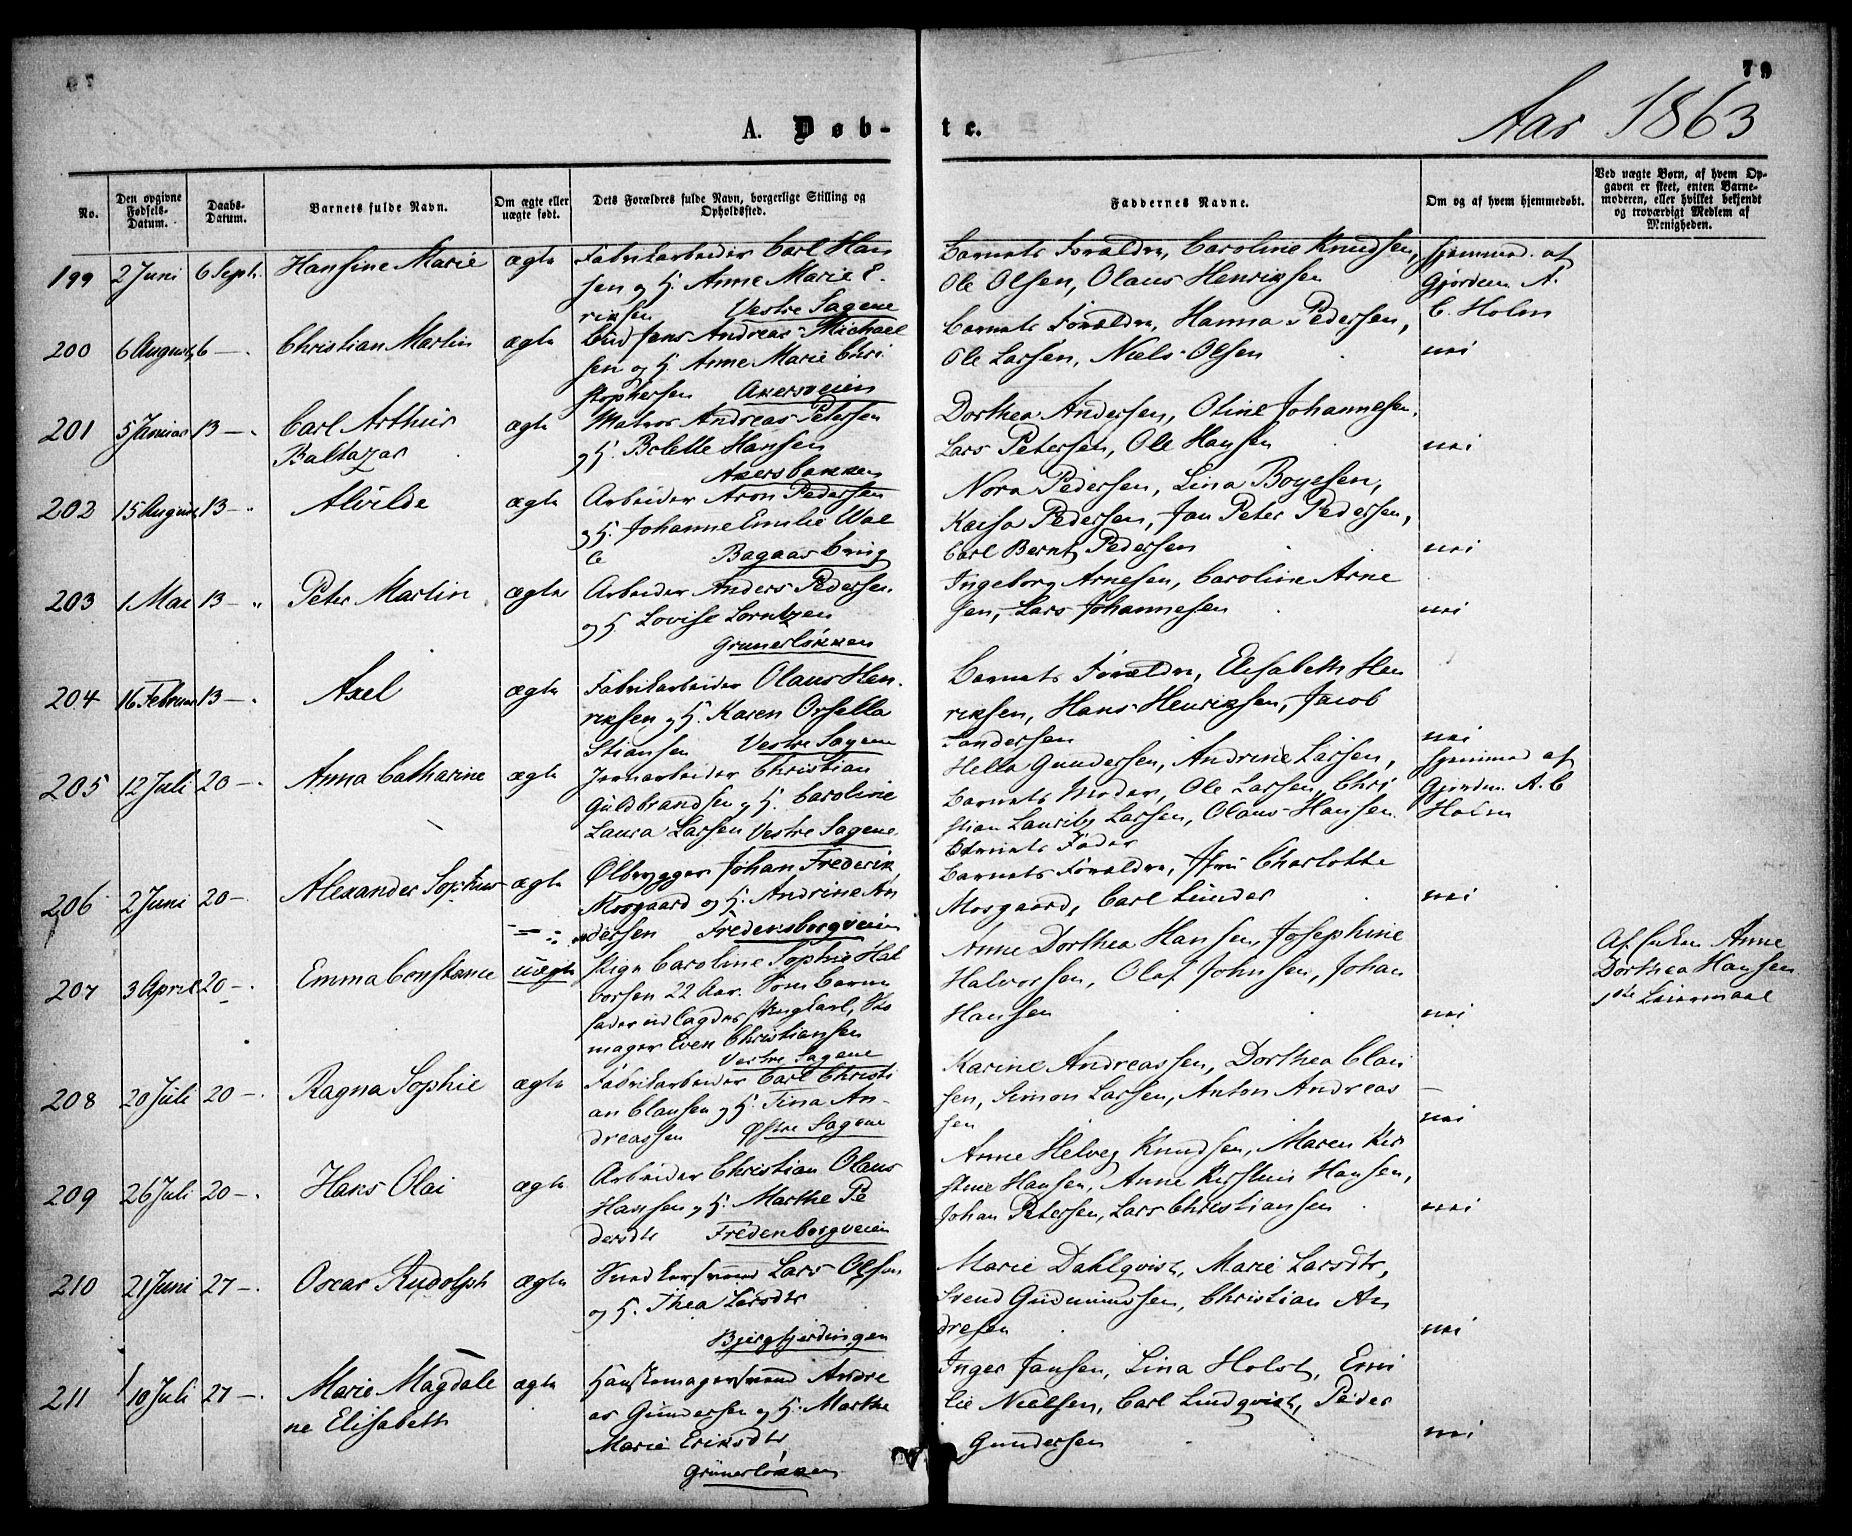 79
A. Døb-te.
Aar 1863
No.
Den opgivne Fødsels-Datum.
Daabs-Datum.
Barnets fulde Navn.
Om ægte eller uægte født.
Dets Forældres fulde Navn, borgerlige Stilling og Opholdssted.
Faddernes Navne.
Om og af hvem hjemmedøbt.
Ved uægte Børn, af hvem Op-
gaven er skeet, enten Barne-
moderen, eller hvilket bekjendt
og troværdigt Medlem af
Menigheden.
199 2 Juni 6 Sept. Hansine Marie ægte
Fabrikarbeider Carl Han
sen og H. Anne Marie E-
riksen Vestre Sagene
Barnets Forældre, Caroline Knudsen,
Ole Olsen, Olaus Henriksen
Hjemmed. af
Gjordem. A.
C. Holm
200 6 August 6 — Christian Martin ægte
Andreas Michael
sen og H. Anne Marie Chri
stophersen Akersveien
Barnets Forældre, Hanna Pedersen,
Ole Larsen, Niels Olsen
nei
201 5 Januar 13 — Carl Arthur
Baltazar ægte
Matros Andreas Petersen
og H. Bolette Hansen
Akersbakken
Dorthea Andersen, Oline Johannesen,
Lars Petersen, Ole Hansen
nei
202 15 August 13 — Alvilde ægte
Arbeider Aron Pedersen
og H. Johanne Emilie Wal
le Bagaasbrug
Nora Pedersen, Lina Boyesen,
Kaisa Pedersen, Jan Peter Pedersen,
Carl Bernt Pedersen
nei
203 1 Mai 13 — Peter Martin ægte
Arbeider Anders Pedersen
og H Lovise Lorntzen
Grunerløkken
Ingeborg Arnesen, Caroline Arne
sen, Lars Johannesen
nei
204 16 Februar 13 — Axel ægte
Fabrikarbeider Olaus Hen-
riksen og H. Karen Orsella
Stiansen Vestre Sagene
Barnets Forældre, Elisabeth Hen
riksen, Hans Henriksen, Jacob
Sandersen
nei
205 12 Juli 20 — Anna Catharine ægte
Jernarbeider Christian
Guldbrandsen og H. Caroline
Laura Larsen Vestre Sagene
Helle Gundersen, Andrine Larsen,
Barnets Moder, Ole Larsen, Chri
stian Lauritz Larsen, Olaus Hansen
Barnets Fader
Hjemmed af
Gjordem. A. C
Holm
206 2 Juni 20 — Alexander Sophus ægte
Ølbrygger Johan Frederik
Mosgaard og H. Andrine An
dersen Fredensborgveien
Barnets Forældre, Jfru Charlotte
Mosgaard, Carl Lunder
nei
207 3 April 20 — Emma Constance uægte
Pige Caroline Sophie Hal
vorsen 22 Aar. Som Barne
fader udlagdes Ungkarl, Sko
mager Even Christiansen
Vestre Sagene
Anne Dorthea Hansen, Josephine
Halvorsen, Olaf Johnsen, Johan
Hansen
nei
Af Enken Anne
Dorthea Hansen
1ste Leiermaal
208 20 Juli 20 — Ragna Sophie ægte
Fabrikarbeider Carl Christi
an Clausen og H. Tina An-
dreassen Østre Sagene
Karine Andreassen, Dorthea Clau
sen, Simon Larsen, Anton Andreas
sen
nei
209 26 Juli 20 — Hans Olai ægte
Arbeider Christian Olaus
Hansen og H. Marthe Pe
dersdtr Fredenborgveien
Anne Helveg Knudsen, Maren Kir
stine Hansen, Anne Kirstine Hansen,
Johan Petersen, Lars Christiansen
nei
210 21 Juni 27 — Oscar Rudolph ægte
Snedkersvend Lars Olsen
og H. Thea Larsdtr
Bjergfjerdingen
Marie Dahlqvist, Marie Larsdtr,
Svend Gudmundsen, Christian An
dresen
nei
211 10 Juli 27 — Marie Magdale
ne Elisabeth ægte
Handskemagersvend Andre
as Gundersen og H. Marthe
Marie Eriksdtr
Grünerløkken
Inger Jansen, Lina Holst, Emi
lie Nielsen, Carl Lundqvist, Peder
Gundersen
nei